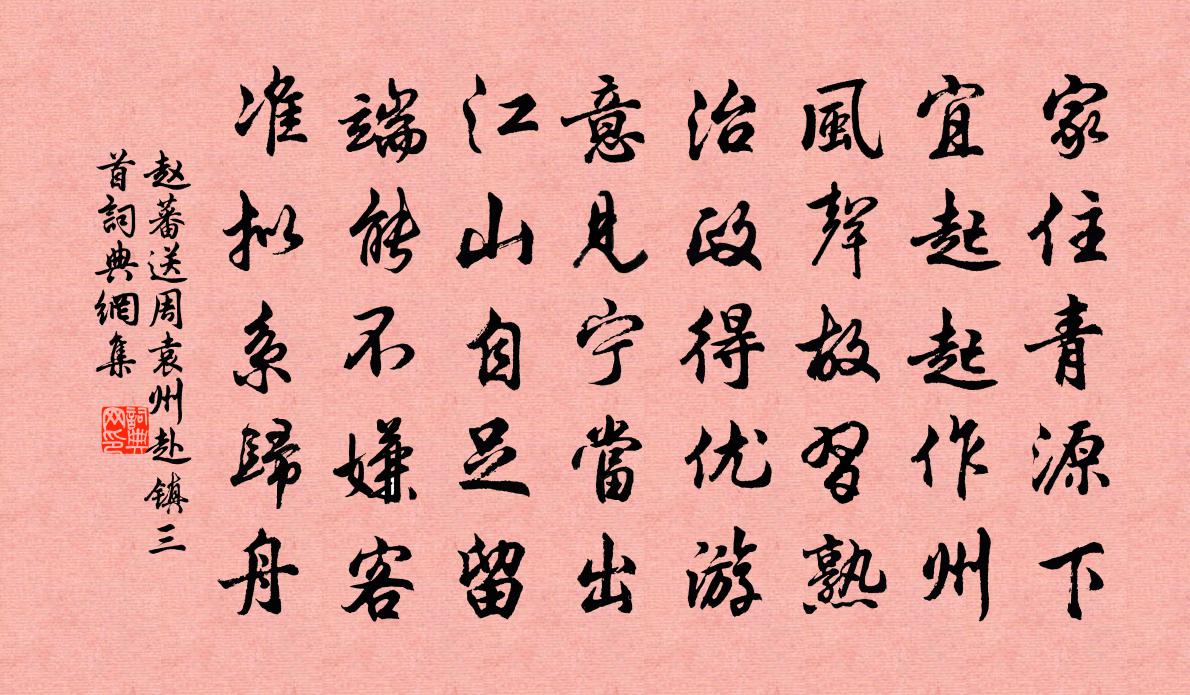 家住青源下
宜起起作州
風聲故習熟
治政得优游
意見宁當出
江山自足留
端能不嫌客
准拟系歸舟
赵蕃送周袁州赴镇三
首詞典網集
詞典网印